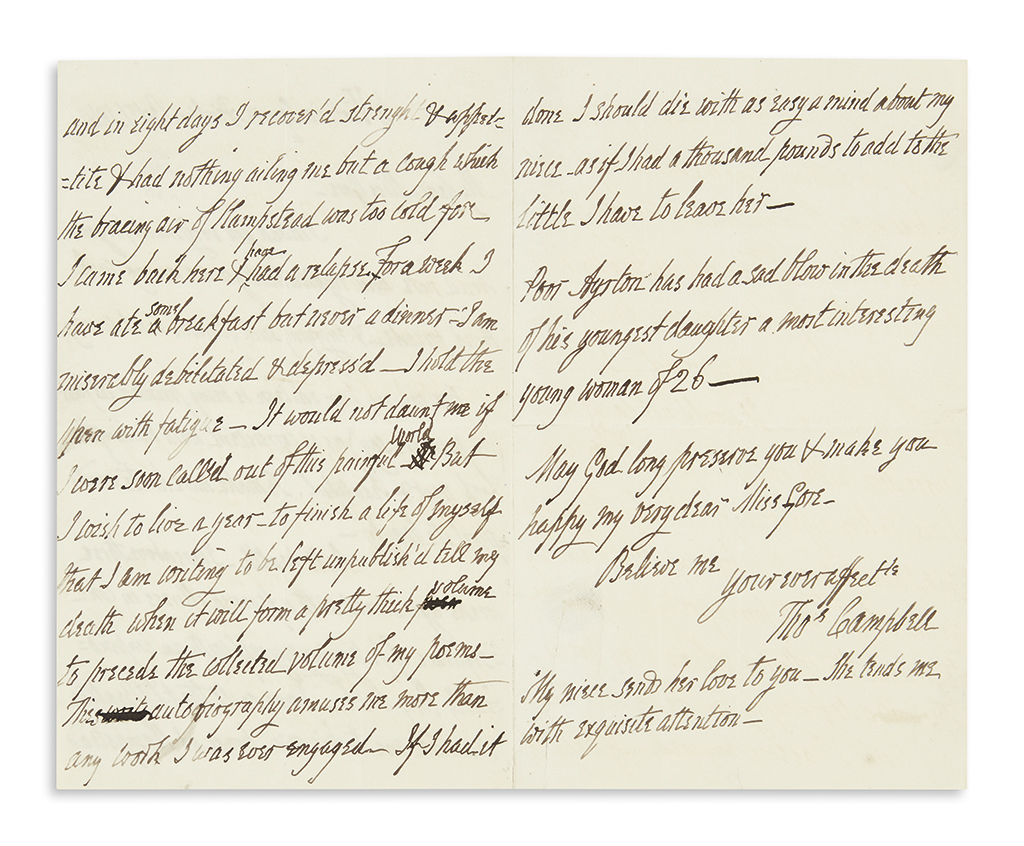 and in eight days I recover'd strenght & appet=
=tite & had nothing ailing me but a cough which
the bracing air of Hampstead was too cold for
I came back here & have had a relapse. For a week I
have ate some breakfast but never a dinner — I am
miserably debilitated & depress'd — I hold the
pen with fatigue — It would not daunt me if
I were soon call'd out of this painful World But
I wish to live a year — to finish a life of myself
that I am writing to be left unpublish'd till my
death when it will form a pretty thick volume
to precede the collected volume of my poems —
This autobiography amuses me more than
any work I was ever engaged — If I had it
done I should die with as easy a mind about my
niece — as if I had a thousand pounds to add to the
little I have to leave her —
Poor Ayrton has had a sad blow in the death
of his youngest daughter a most interesting
young woman of 26 —
May God long preserve you & make you
happy my very dear Miss Gore —
Believe me
your ever affectte
Thos Campbell
My niece sends her love to you — She tends me
with exquisite attention —